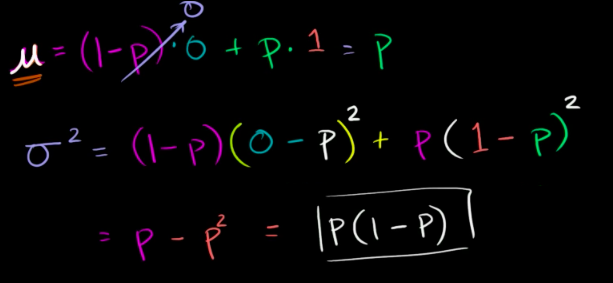 μ = (1-p)·0 + p·1 = p
0
σ² = (1-p)(0-p)² + p(1-p)²
= p - p² = p(1-p)